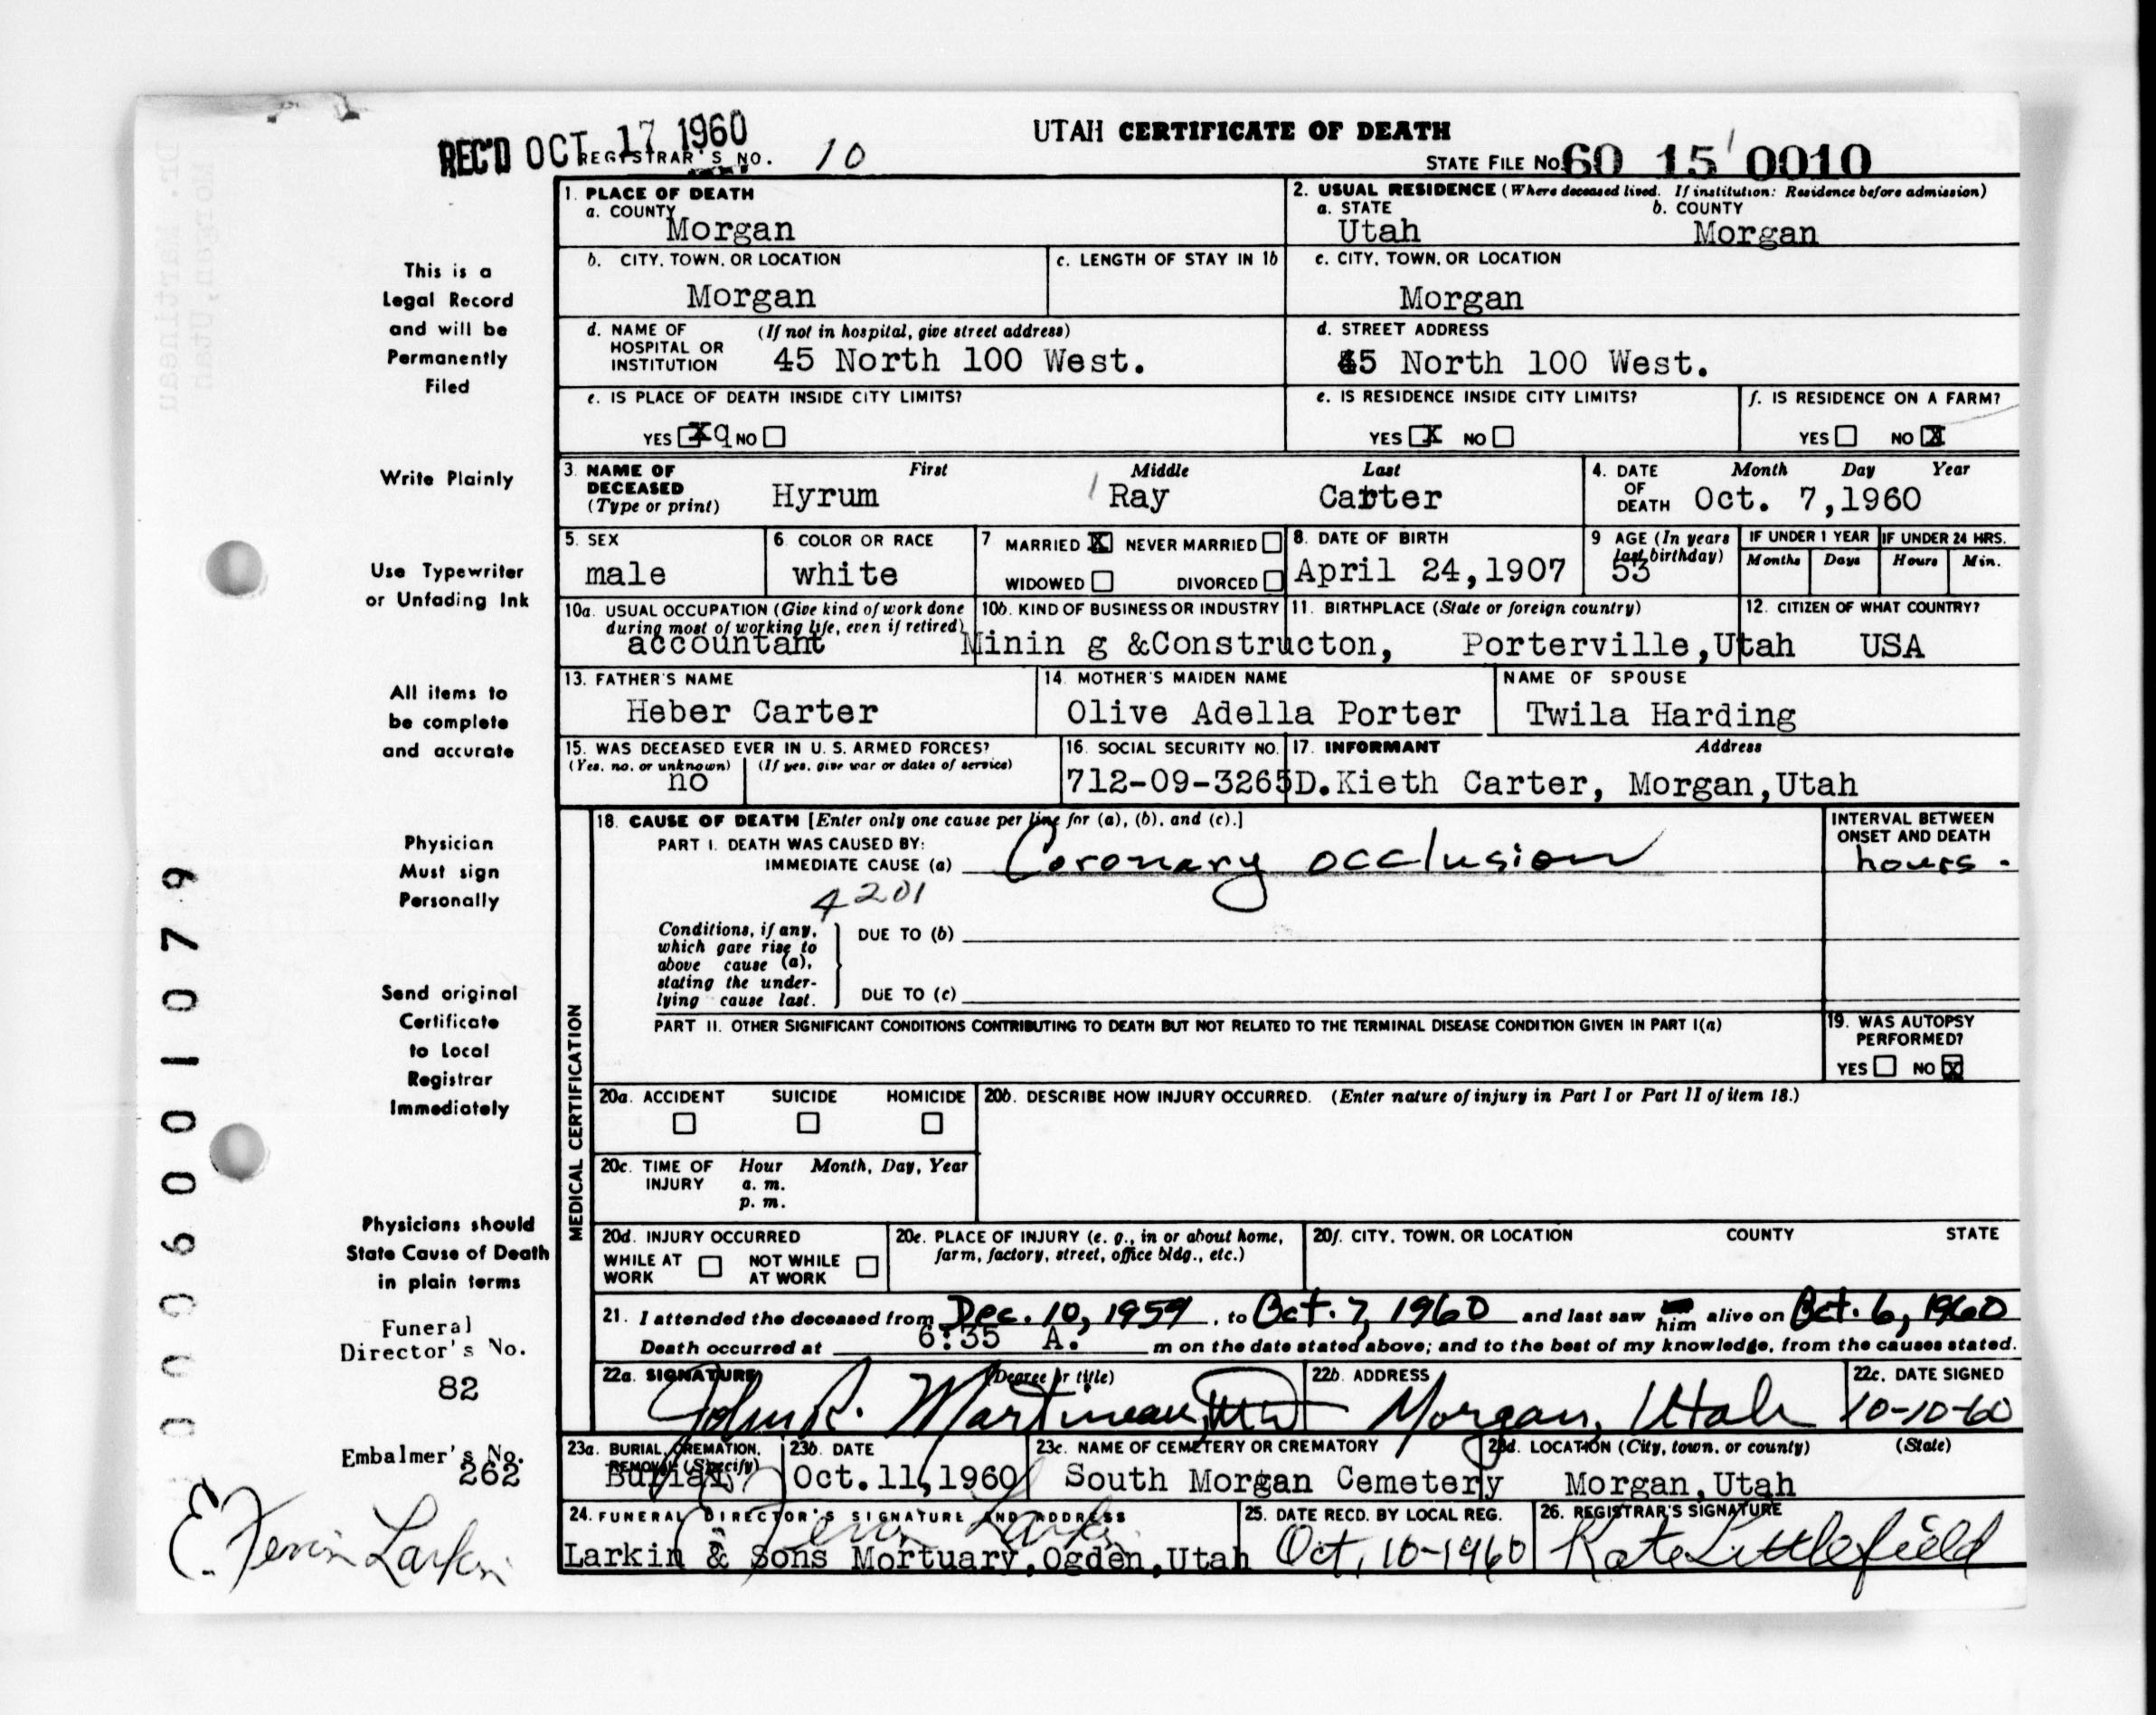 REC'D OCT 17 1960
REGISTRAR'S NO. 10
UTAH CERTIFICATE OF DEATH
STATE FILE NO. 60 15 0010
1. PLACE OF DEATH
a. COUNTY
Morgan
2. USUAL RESIDENCE (Where deceased lived. If institution: Residence before admission)
a. STATE b. COUNTY
Utah Morgan
b. CITY, TOWN, OR LOCATION
Morgan
c. LENGTH OF STAY IN 1b
c. CITY, TOWN, OR LOCATION
Morgan
d. NAME OF HOSPITAL OR INSTITUTION (If not in hospital, give street address)
45 North 100 West.
d. STREET ADDRESS
45 North 100 West.
e. IS PLACE OF DEATH INSIDE CITY LIMITS?
YES X NO
e. IS RESIDENCE INSIDE CITY LIMITS?
YES X NO
f. IS RESIDENCE ON A FARM?
YES NO X
3. NAME OF DECEASED (Type or print)
First Middle Last
Hyrum Ray Carter
4. DATE OF DEATH Month Day Year
Oct. 7,1960
5. SEX
male
6. COLOR OR RACE
white
7 MARRIED X NEVER MARRIED
WIDOWED DIVORCED
8. DATE OF BIRTH
April 24,1907
9 AGE (In years last birthday)
53
IF UNDER 1 YEAR
Months Days
IF UNDER 24 HRS.
Hours Min.
10a. USUAL OCCUPATION (Give kind of work done during most of working life, even if retired)
accountant
10b. KIND OF BUSINESS OR INDUSTRY
Minin g &Constructon,
11. BIRTHPLACE (State or foreign country)
Porterville,Utah
12. CITIZEN OF WHAT COUNTRY?
USA
13. FATHER'S NAME
Heber Carter
14. MOTHER'S MAIDEN NAME
Olive Adella Porter
NAME OF SPOUSE
Twila Harding
15. WAS DECEASED EVER IN U. S. ARMED FORCES?
(Yes, no, or unknown) (If yes, give war or dates of service)
no
16. SOCIAL SECURITY NO.
712-09-3265
17. INFORMANT Address
D.Kieth Carter, Morgan,Utah
MEDICAL CERTIFICATION
18. CAUSE OF DEATH [Enter only one cause per line for (a), (b), and (c).]
PART I. DEATH WAS CAUSED BY:
IMMEDIATE CAUSE (a) Coronary occlusion
4201
INTERVAL BETWEEN ONSET AND DEATH
hours.
Conditions, if any, which gave rise to above cause (a), stating the underlying cause last.
DUE TO (b)
DUE TO (c)
PART II. OTHER SIGNIFICANT CONDITIONS CONTRIBUTING TO DEATH BUT NOT RELATED TO THE TERMINAL DISEASE CONDITION GIVEN IN PART I(a)
19. WAS AUTOPSY PERFORMED?
YES NO X
20a. ACCIDENT SUICIDE HOMICIDE
20b. DESCRIBE HOW INJURY OCCURRED. (Enter nature of injury in Part I or Part II of item 18.)
20c. TIME OF INJURY Hour Month, Day, Year
a. m.
p. m.
20d. INJURY OCCURRED
WHILE AT WORK NOT WHILE AT WORK
20e. PLACE OF INJURY (e. g., in or about home, farm, factory, street, office bldg., etc.)
20f. CITY, TOWN, OR LOCATION COUNTY STATE
21. I attended the deceased from Dec. 10, 1959, to Oct. 7, 1960 and last saw him alive on Oct. 6, 1960
Death occurred at 6:35 A. m on the date stated above; and to the best of my knowledge, from the causes stated.
22a. SIGNATURE (Degree or title)
John R. Martineau, MD
22b. ADDRESS
Morgan, Utah
22c. DATE SIGNED
10-10-60
23a. BURIAL, CREMATION, REMOVAL (Specify)
Burial
23b. DATE
Oct.11,1960
23c. NAME OF CEMETERY OR CREMATORY
South Morgan Cemetery
23d. LOCATION (City, town, or county) (State)
Morgan,Utah
24. FUNERAL DIRECTOR'S SIGNATURE AND ADDRESS
Larkin & Sons Mortuary,Ogden,Utah
25. DATE RECD. BY LOCAL REG.
Oct, 10-1960
26. REGISTRAR'S SIGNATURE
Kate Littlefield
This is a
Legal Record
and will be
Permanently
Filed
Write Plainly
Use Typewriter
or Unfading Ink
All items to
be complete
and accurate
Physician
Must sign
Personally
Send original
Certificate
to Local
Registrar
Immediately
Physicians should
State Cause of Death
in plain terms
Funeral
Director's No.
82
Embalmer's No.
262
Larkin
Dr. Martineau
Morgan, Utah